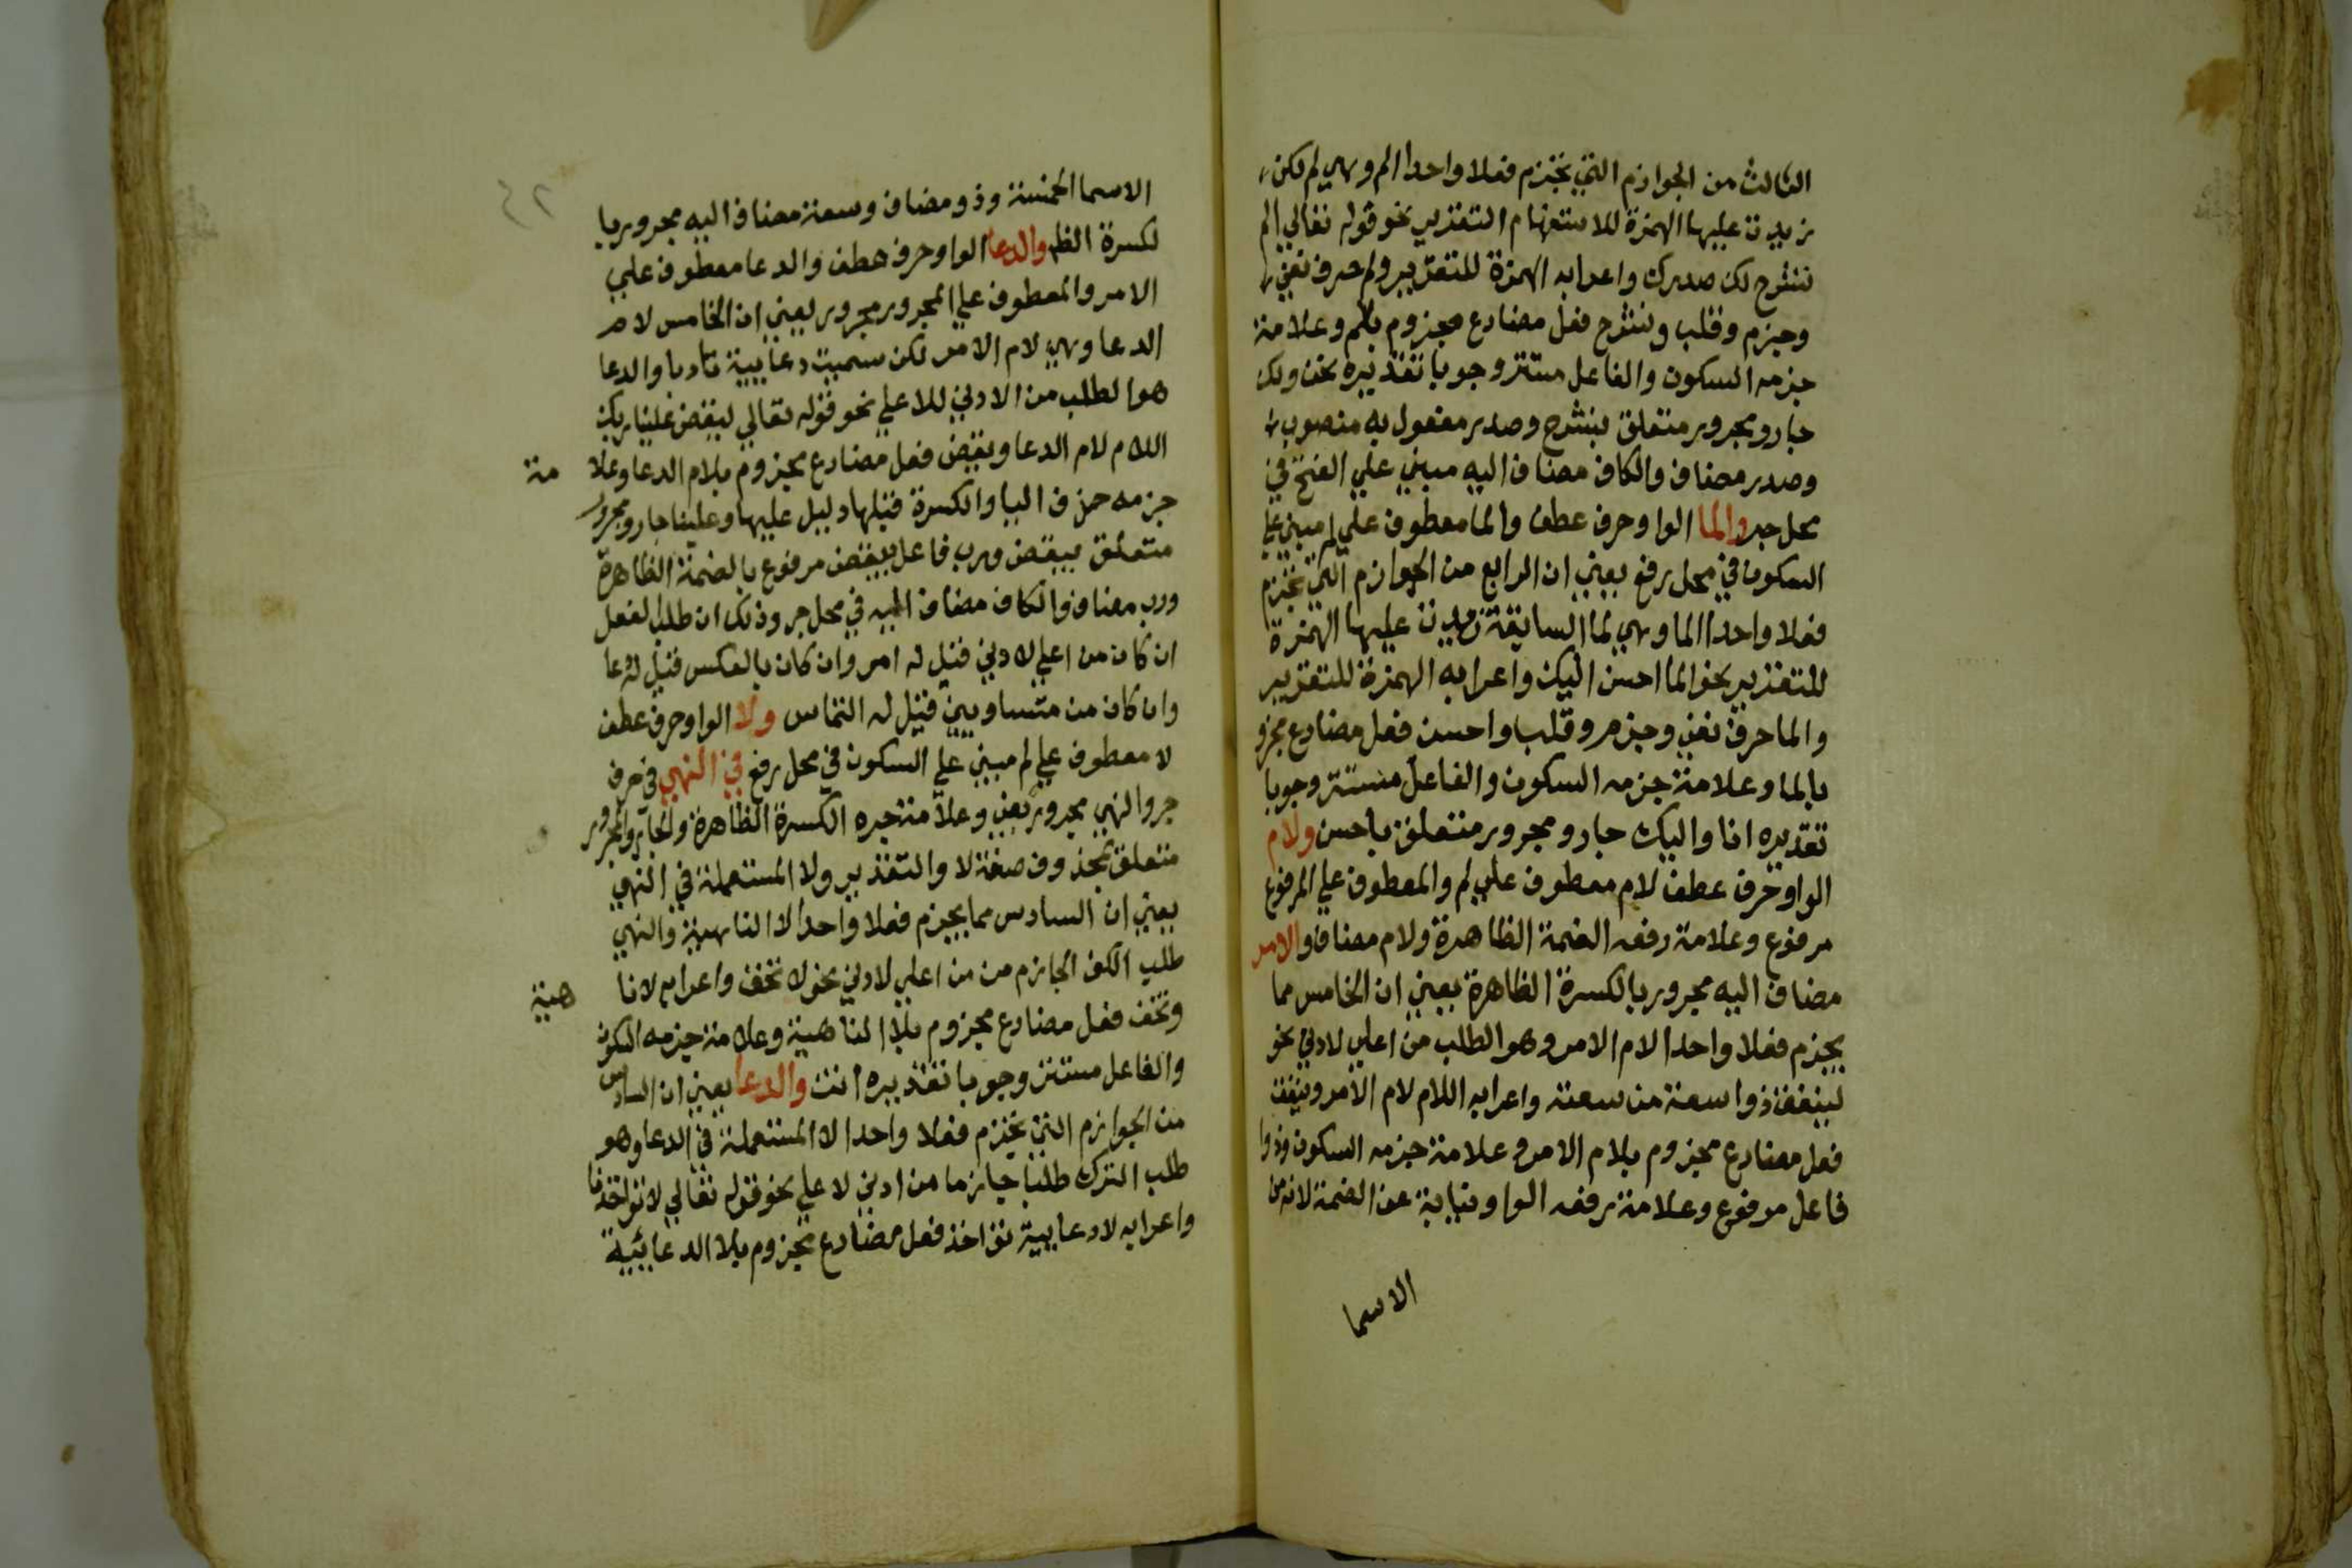 الثالث من الجوازم التي تجزم فعلا واحدا الم وهي لم لكن
زيدت عليها الهمزة للاستفهام التقريري نحو قوله تعالي الم
نشرح لك صدرك واعرابه الهمزة للتقرير ولم حرف نفي
وجزم وقلب ونشرح فعل مضارع مجزوم بلم وعلامة
جزمه السكون والفاعل مستتر وجوبا تقديره نحن ولك
جار ومجرور متعلق بنشرح وصدر مفعول به منصوب
وصدر مضاف والكاف مضاف اليه مبني علي الفتح في
محل جر والما الواو حرف عطف والما معطوف علي لم مبني علي
السكون في محل رفع يعني ان الرابع من الجوازم التي تجزم
فعلا واحدا الما وهي لما السابقة زيدت عليها الهمزة
للتقرير نحو الما احسن اليك واعرابه الهمزة للتقرير
والما حرف نفي وجزم وقلب واحسن فعل مضارع مجزو
بالما وعلامة جزمه السكون والفاعل مستتر وجوبا
تقديره انا واليك جار ومجرور متعلق باحسن ولام
الواو حرف عطف لام معطوف علي لم والمعطوف علي المرفوع
مرفوع وعلامة رفعه الضمة الظاهرة ولام مضاف والامر
مضاف اليه مجرور بالكسرة الظاهرة يعني ان الخامس مما
يجزم فعلا واحدا لام الامر وهو الطلب من اعلي لادني نحو
لينفق ذوا سعة من سعته واعرابه اللام لام الامر وينفق
فعل مضارع مجزوم بلام الامر وعلامة جزمه السكون وذوا
فاعل مرفوع وعلامة رفعه الواو نيابة عن الضمة لانه من
الاسما
٤٢
الاسما الخمسة وذو مضاف وسعة مضاف اليه مجرور با
لكسرة الظ والدعا الواو حرف عطف والدعا معطوف علي
الامر والمعطوف علي المجرور مجرور يعني ان الخامس لام
الدعا وهي لام الامر لكن سميت دعاييية تادبا والدعا
هوا لطلب من الادني للاعلي نحو قوله تعالي ليقض علينا ربك
اللام لام الدعا ويقض فعل مضارع مجزوم بلام الدعا وعلا مة
جزمه حذف اليا والكسرة قبلها دليل عليها وعلينا جار ومجرور
متعلق بيقض ورب فاعل بيقض مرفوع بالضمة الظاهرة
ورب مضاف والكاف مضاف اليه في محل جر وذلك ان طلب الفعل
ان كان من اعلي لادني قيل له امر وان كان بالعكس قيل له دعا
وان كان من متساويين قيل له التماس ولا الواو حرف عطف
لا معطوف علي لم مبني علي السكون في محل رفع في النهي في حرف
جر والنهي مجرور بفي وعلامة جره الكسرة الظاهرة والجار والمجرور
متعلق بمحذوف صفة لا والتقدير ولا المستعملة في النهي
يعني ان السادس مما يجزم فعلا واحدا لا الناهية والنهي
طلب الكف الجازم من من اعلي لادني نحو لا تخف واعرابه لا نا هية
وتخف فعل مضارع مجزوم بلا الناهية وعلامة جزمه السكون
والفاعل مستتر وجوبا تقديره انت والدعا يعني ان السادس
من الجوازم التي تجزم فعلا واحدا لا المستعملة في الدعا وهو
طلب الترك طلبا جازما من ادني لاعلي نحو قوله تعالي لا تواخذنا
واعرابه لا دعايية تواخذ فعل مضارع مجزوم بلا الدعائية